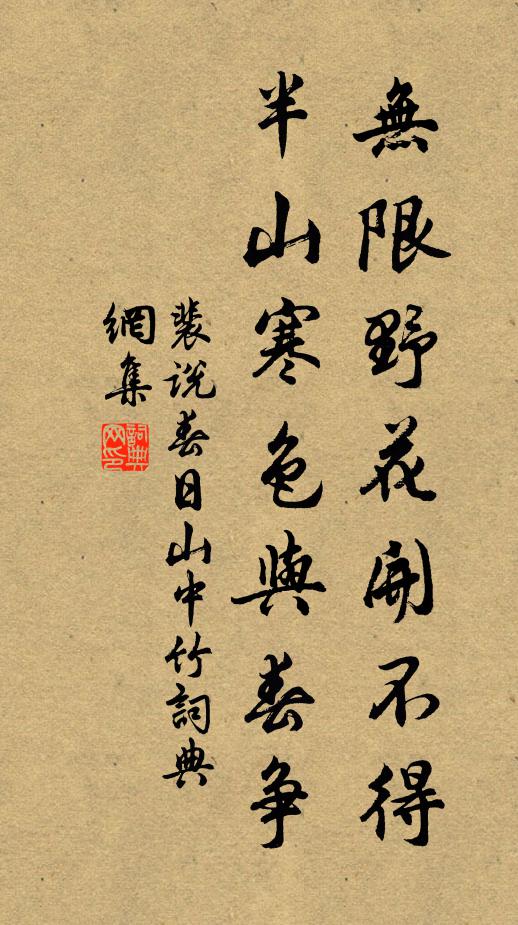 無限野花開不得
半山寒色與春爭
裴説春日山中竹詞典
網集
詞典網印